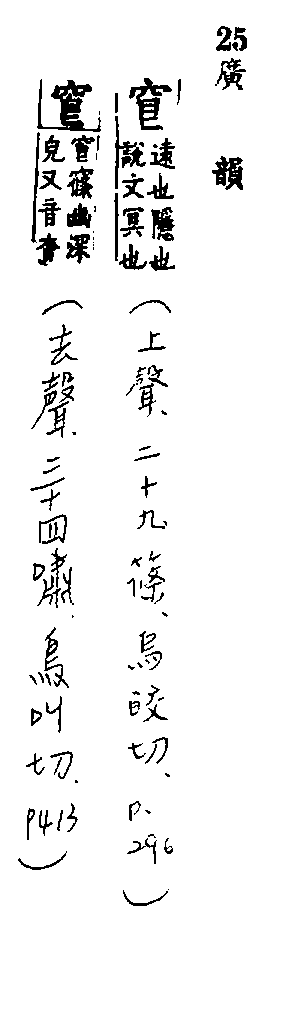 25 廣韻
窅 遠也隱也
說文冥也
(上聲、二十九篠、烏皎切、P.296)
窅 窅篠幽深
皃又音杳
(去聲、三十四嘯、烏叫切、P413)